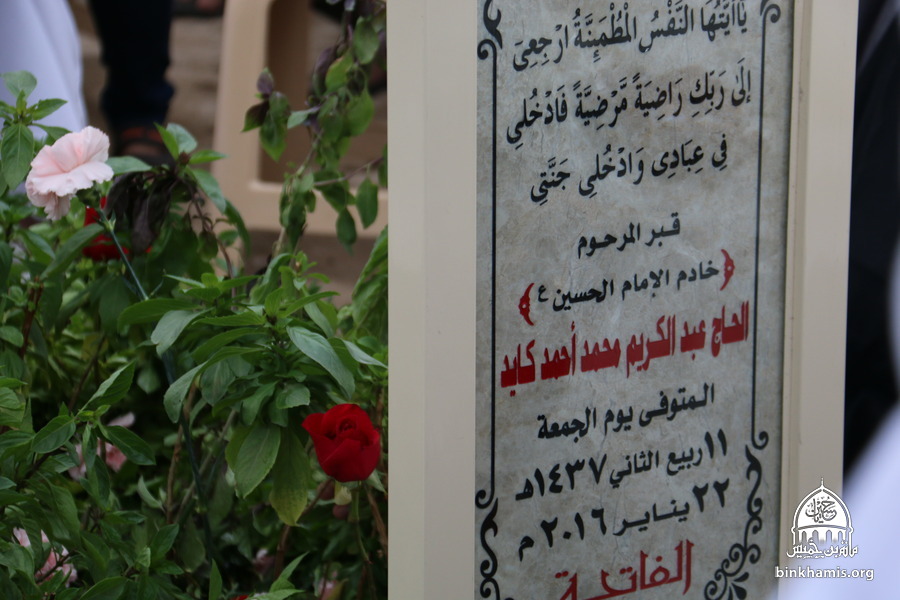 يَا أَيَّتُهَا النَّفْسُ الْمُطْمَئِنَّةُ ارْجِعِي
إِلَى رَبِّكِ رَاضِيَةً مَّرْضِيَّةً فَادْخُلِي
فِي عِبَادِي وَادْخُلِي جَنَّتِي
قبر المرحوم
(خادم الإمام الحسين ع)
الحاج عبد الكريم محمد أحمد كايد
المتوفى يوم الجمعة
١١ ربيع الثاني ١٤٣٧هـ
٢٢ يناير ٢٠١٦ م
الفاتحة
مأتم بن خميس
binkhamis.org